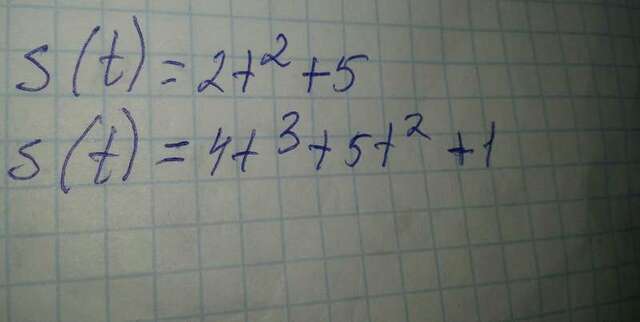 s(t)=2t²+5
s(t)=4t³+5t²+1